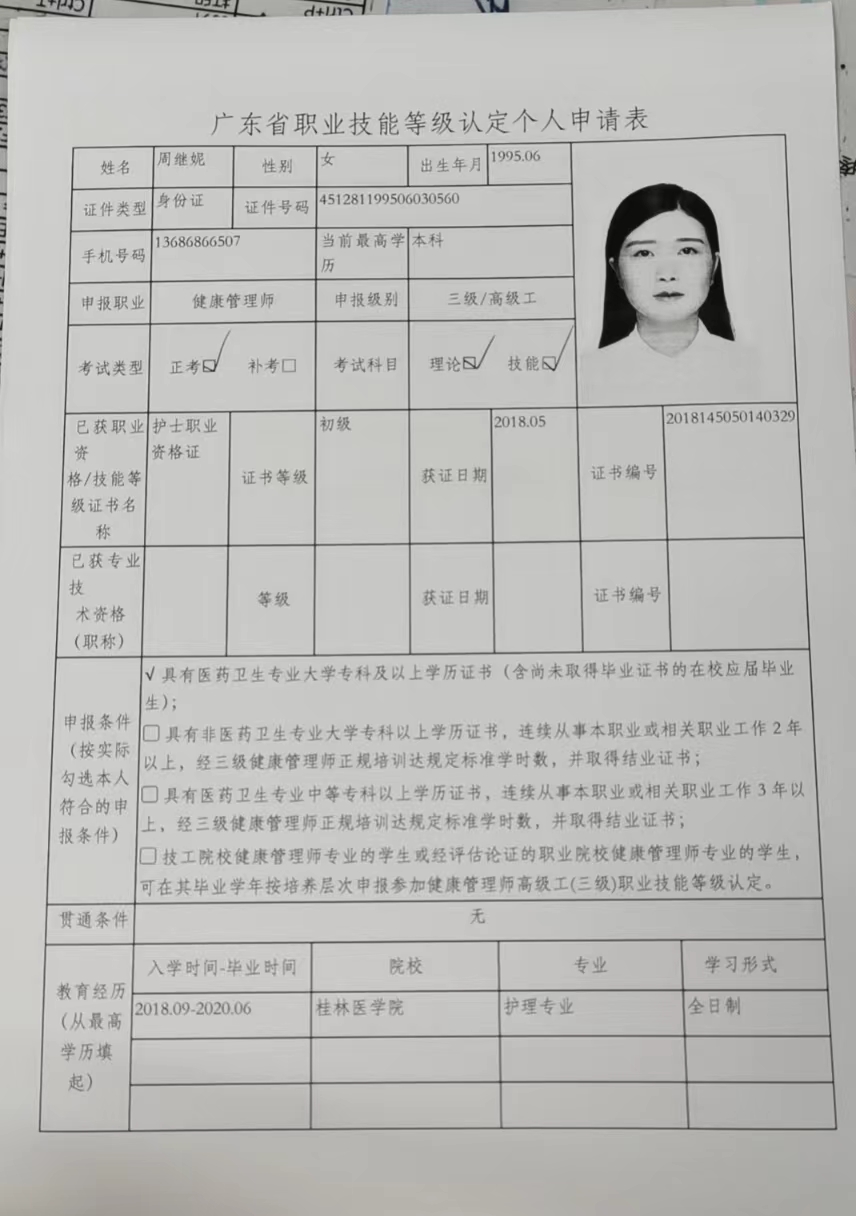 广东省职业技能等级认定个人申请表
姓名 周继妮 性别 女 出生年月 1995.06
证件类型 身份证 证件号码 451281199506030560
手机号码 13686866507 当前最高学历 本科
申报职业 健康管理师 申报级别 三级/高级工
考试类型 正考☑ 补考□ 考试科目 理论☑ 技能☑
已获职业资格/技能等级证书名称 护士职业资格证 证书等级 初级 获证日期 2018.05 证书编号 2018145050140329
已获专业技术资格(职称) 等级 获证日期 证书编号
申报条件(按实际勾选本人符合的申报条件)
√具有医药卫生专业大学专科及以上学历证书(含尚未取得毕业证书的在校应届毕业
生);
□具有非医药卫生专业大学专科以上学历证书,连续从事本职业或相关职业工作2年
以上,经三级健康管理师正规培训达规定标准学时数,并取得结业证书;
□具有医药卫生专业中等专科以上学历证书,连续从事本职业或相关职业工作3年以
上,经三级健康管理师正规培训达规定标准学时数,并取得结业证书;
□技工院校健康管理师专业的学生或经评估论证的职业院校健康管理师专业的学生,
可在其毕业学年按培养层次申报参加健康管理师高级工(三级)职业技能等级认定。
贯通条件 无
教育经历(从最高学历填起)
入学时间-毕业时间 院校 专业 学习形式
2018.09-2020.06 桂林医学院 护理专业 全日制